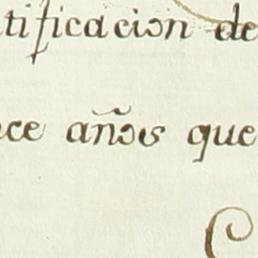 tificacion de
ce años que
C